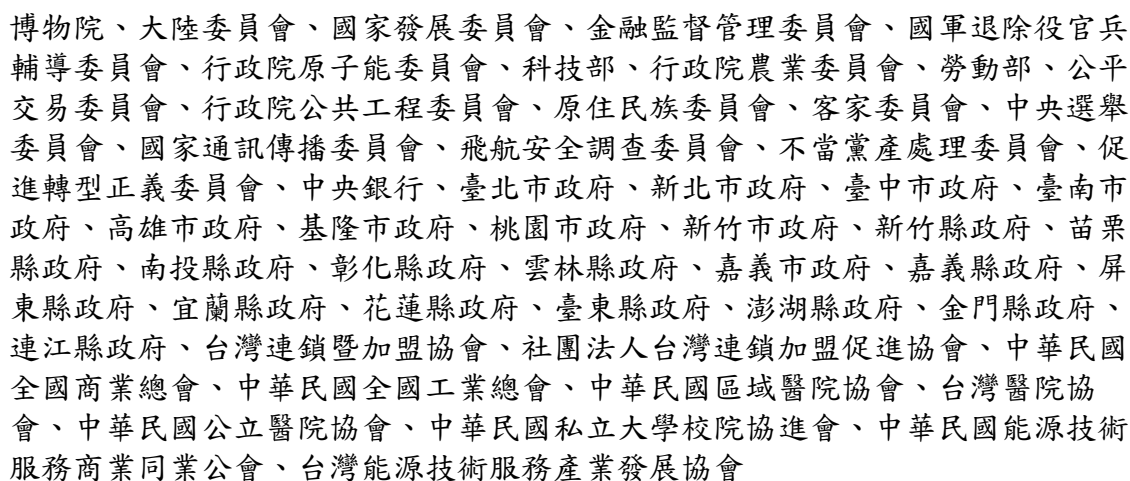 博物院、大陸委員會、國家發展委員會、金融監督管理委員會、國軍退除役官兵
輔導委員會、行政院原子能委員會、科技部、行政院農業委員會、勞動部、公平
交易委員會、行政院公共工程委員會、原住民族委員會、客家委員會、中央選舉
委員會、國家通訊傳播委員會、飛航安全調查委員會、不當黨產處理委員會、促
進轉型正義委員會、中央銀行、臺北市政府、新北市政府、臺中市政府、臺南市
政府、高雄市政府、基隆市政府、桃園市政府、新竹市政府、新竹縣政府、苗栗
縣政府、南投縣政府、彰化縣政府、雲林縣政府、嘉義市政府、嘉義縣政府、屏
東縣政府、宜蘭縣政府、花蓮縣政府、臺東縣政府、澎湖縣政府、金門縣政府、
連江縣政府、台灣連鎖暨加盟協會、社團法人台灣連鎖加盟促進協會、中華民國
全國商業總會、中華民國全國工業總會、中華民國區域醫院協會、台灣醫院協
會、中華民國公立醫院協會、中華民國私立大學校院協進會、中華民國能源技術
服務商業同業公會、台灣能源技術服務產業發展協會